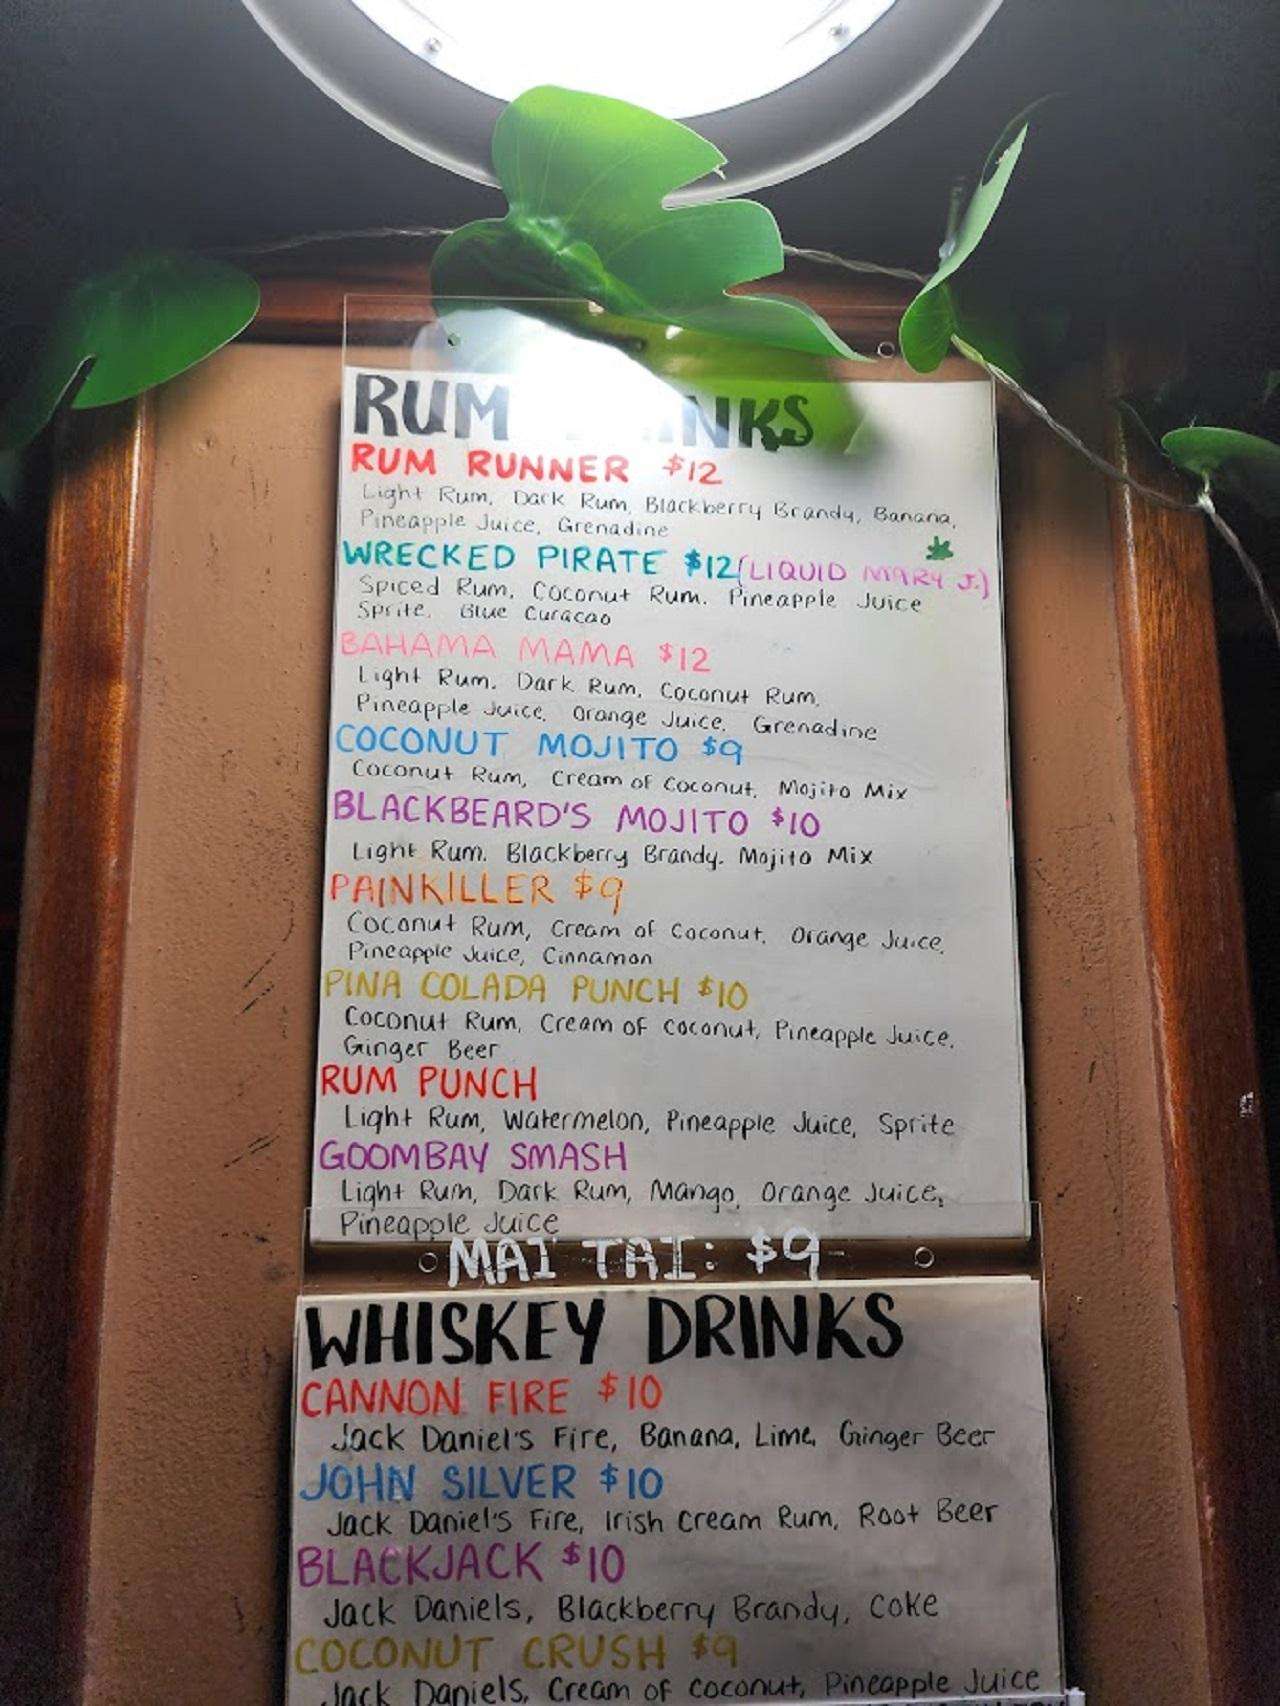 RUM DRINKS
RUM RUNNER $12
Light Rum, Dark Rum, Blackberry Brandy, Banana,
Pineapple Juice, Grenadine
WRECKED PIRATE $12 (LIQUID MARY J.)
Spiced Rum, Coconut Rum, Pineapple Juice
Sprite, Blue Curacao
BAHAMA MAMA $12
Light Rum, Dark Rum, Coconut Rum,
Pineapple Juice, Orange Juice, Grenadine
COCONUT MOJITO $9
Coconut Rum, Cream of Coconut, Mojito Mix
BLACKBEARD'S MOJITO $10
Light Rum, Blackberry Brandy, Mojito Mix
PAINKILLER $9
Coconut Rum, Cream of Coconut, Orange Juice,
Pineapple Juice, Cinnamon
PINA COLADA PUNCH $10
Coconut Rum, Cream of Coconut, Pineapple Juice,
Ginger Beer
RUM PUNCH
Light Rum, Watermelon, Pineapple Juice, Sprite
GOOMBAY SMASH
Light Rum, Dark Rum, Mango, Orange Juice,
Pineapple Juice
MAI TAI: $9
WHISKEY DRINKS
CANNON FIRE $10
Jack Daniel's Fire, Banana, Lime, Ginger Beer
JOHN SILVER $10
Jack Daniel's Fire, Irish Cream Rum, Root Beer
BLACKJACK $10
Jack Daniels, Blackberry Brandy, Coke
COCONUT CRUSH $9
Jack Daniels, Cream of Coconut, Pineapple Juice